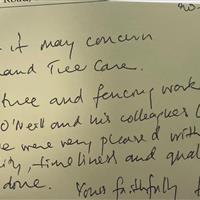 Road,
if may concern
and Tree Care.
tree and fencing work
O'Neill and his colleagues
we were very pleased with
ity, timeliness and qual
done.
Yours faithfully